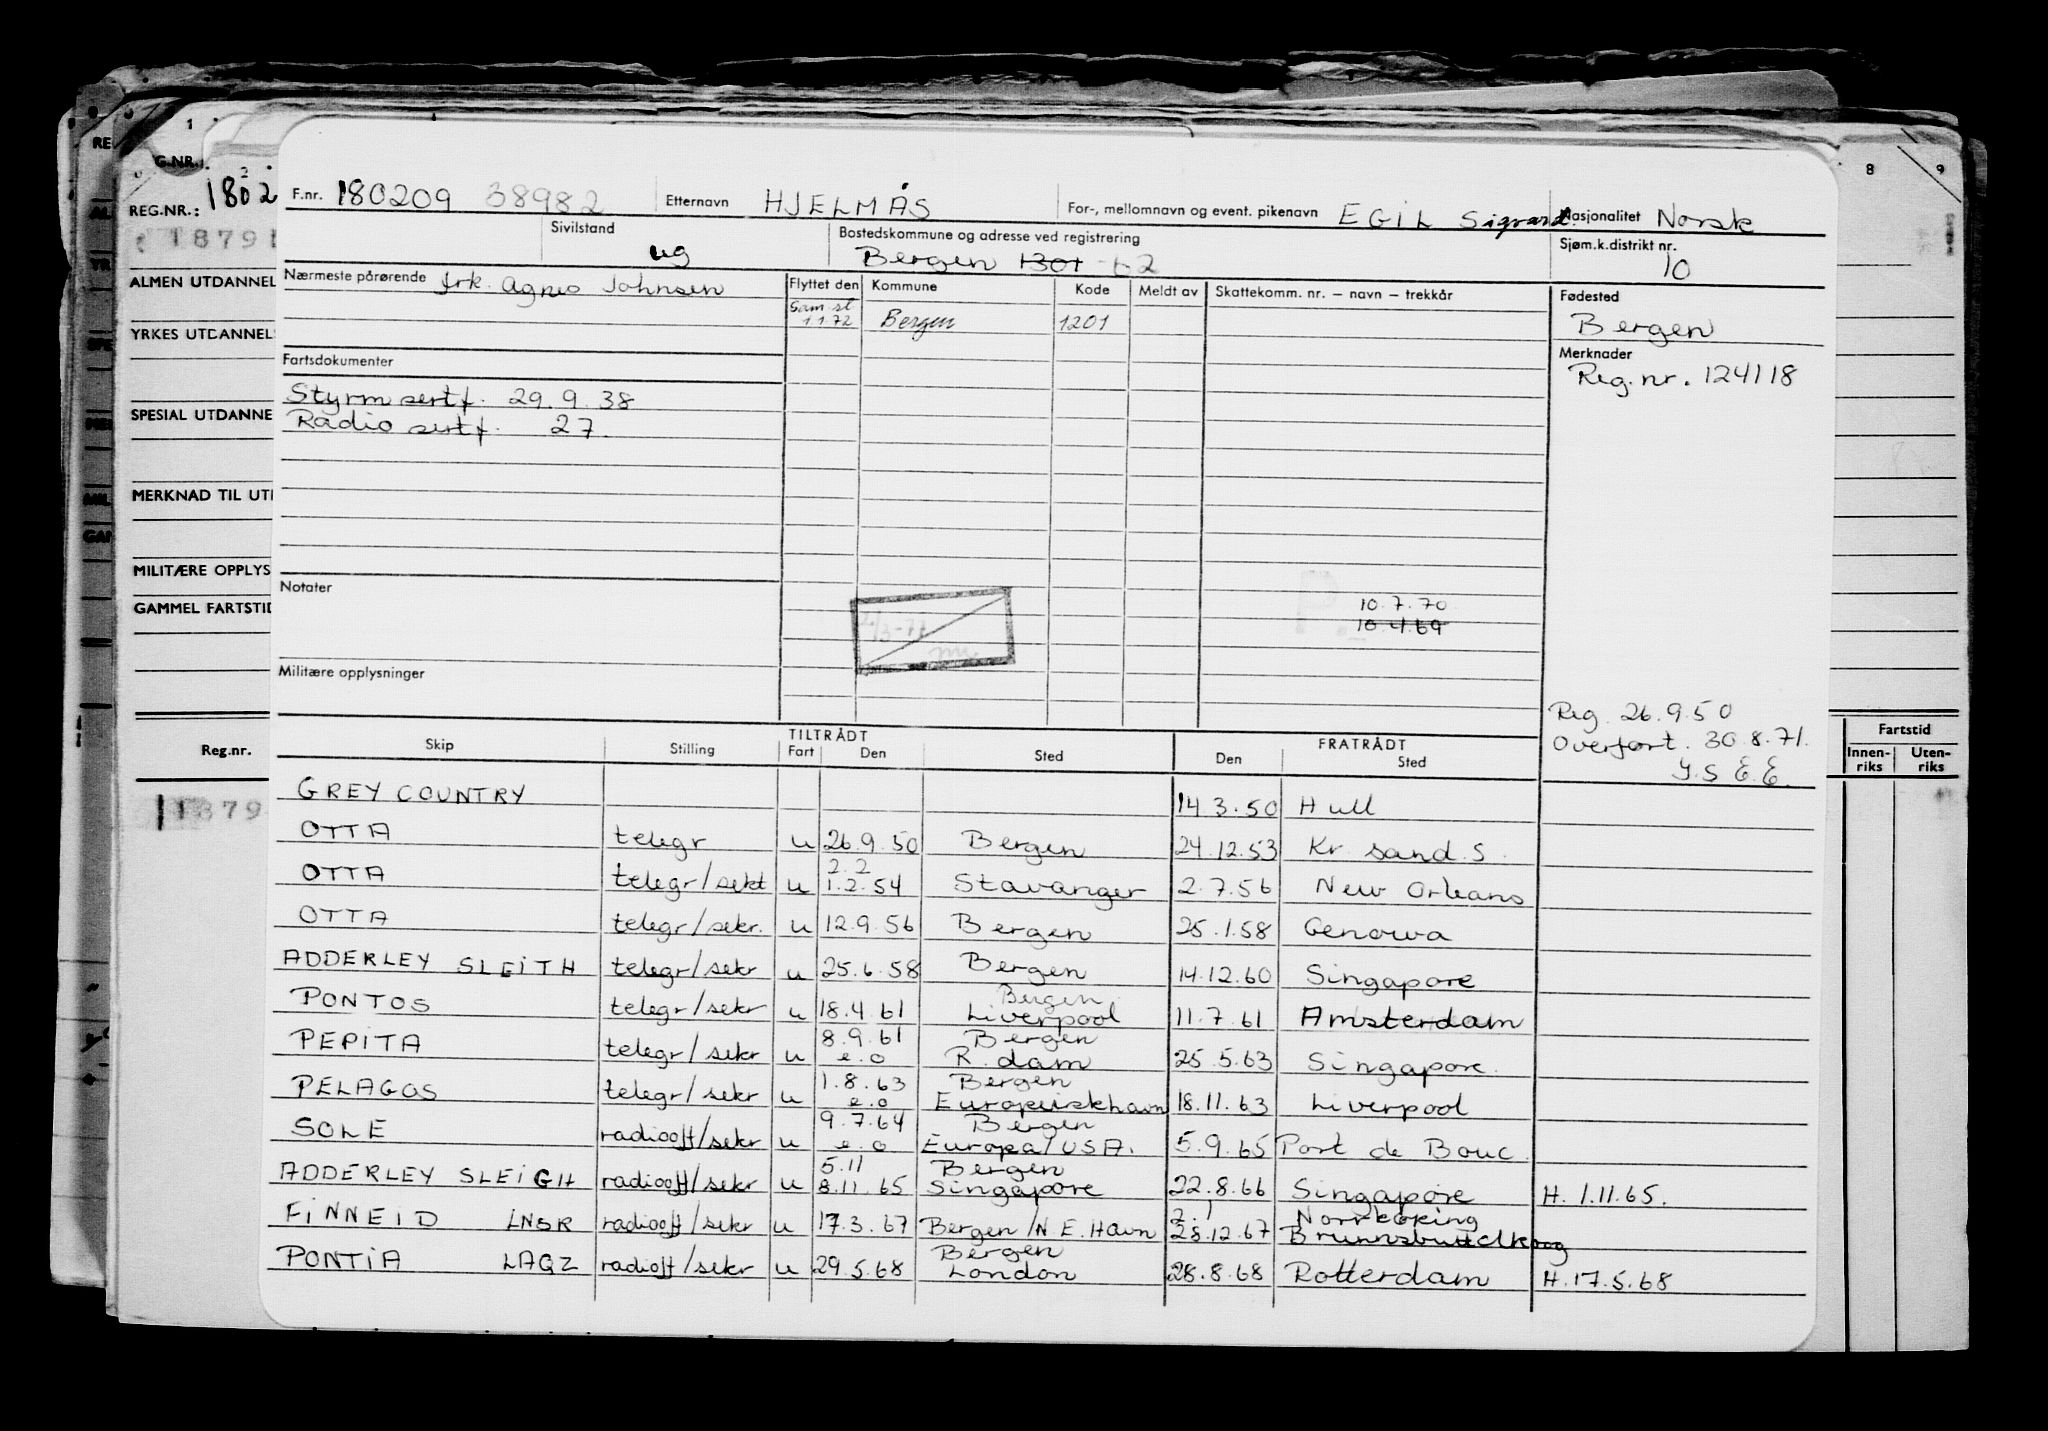 F.nr. 180209 38982 Etternavn HJELMÅS For-, mellomnavn og event. pikenavn EGIL Sigvard Nasjonalitet Norsk
Sivilstand ug Bostedskommune og adresse ved registrering Bergen 1301 -62 Sjøm.k.distrikt nr. 10
Nærmeste pårørende frk. Agnes Johnsen Flyttet den Kommune Kode Meldt av Skattekomm. nr. – navn – trekkår Fødested
Sam.st 1.1.72 Bergen 1201 Bergen
Fartsdokumenter Merknader
Reg. nr. 124118
Styrm sertf. 29.9.38
Radio sertf. 27.
Notater
10.7.70
10.4.69
Militære opplysninger
Reg. 26.9.50
Overført. 30.8.71.
Y.S E.E.
Skip Stilling TILTRÅDT Fart Den Sted FRATRÅDT Den Sted
GREY COUNTRY 14.3.50 Hull
OTTA telegr u 26.9.50 Bergen 24.12.53 Kr. sand. S.
2.2
OTTA telegr/sekt u 1.2.54 Stavanger 2.7.56 New Orleans
OTTA telegr/sekr. u 12.9.56 Bergen 25.1.58 Genowa
ADDERLEY SLEITH telegr/sekr u 25.6.58 Bergen 14.12.60 Singapore
Bergen
PONTOS telegr/sekr u 18.4.61 Liverpool 11.7.61 Amsterdam
8.9.61 Bergen
PEPITA telegr/sekr u e.o R.dam 25.5.63 Singapore.
1.8.63 Bergen
PELAGOS telegr/sekr u e.o Europeiskhavn 18.11.63 Liverpool
9.7.64 Bergen
SOLE radiooff/sekr u e.o Europa/USA. 5.9.65 Port de Bouc
5.11 Bergen
ADDERLEY SLEIGH radiooff/sekr u 8.11.65 Singapore 22.8.66 Singapore H. 1.11.65.
2.1 Norrkøping
FINNEID LNSR radiooff/sekr u 17.3.67 Bergen/N E. Havn 28.12.67 Brunnsbuttelkoog
Bergen
PONTIA LAQZ radioff/sekr u 29.5.68 London 28.8.68 Rotterdam H. 17.5.68
RE
G.NR.
1 2 8 9
REG.NR.: 1802
1879
ALMEN UTDANNEL
YRKES UTDANNELS
SPESIAL UTDANNE
MERKNAD TIL UT
MILITÆRE OPPLYS
GAMMEL FARTSTID
Reg.nr.
1879
Fartstid
Innen-riks Uten-riks